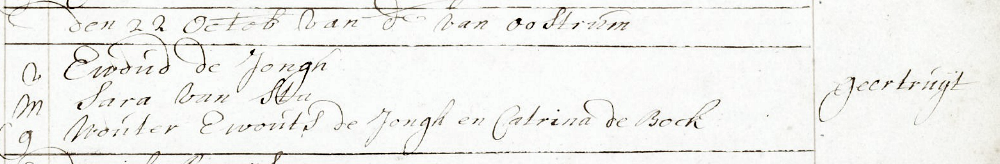 den 22 Octob van ds van oostrum
v Ewoud de Jongh
m Sara van Stu
g Wouter Ewouts de Jongh en Catrina de Bock
geertruijt